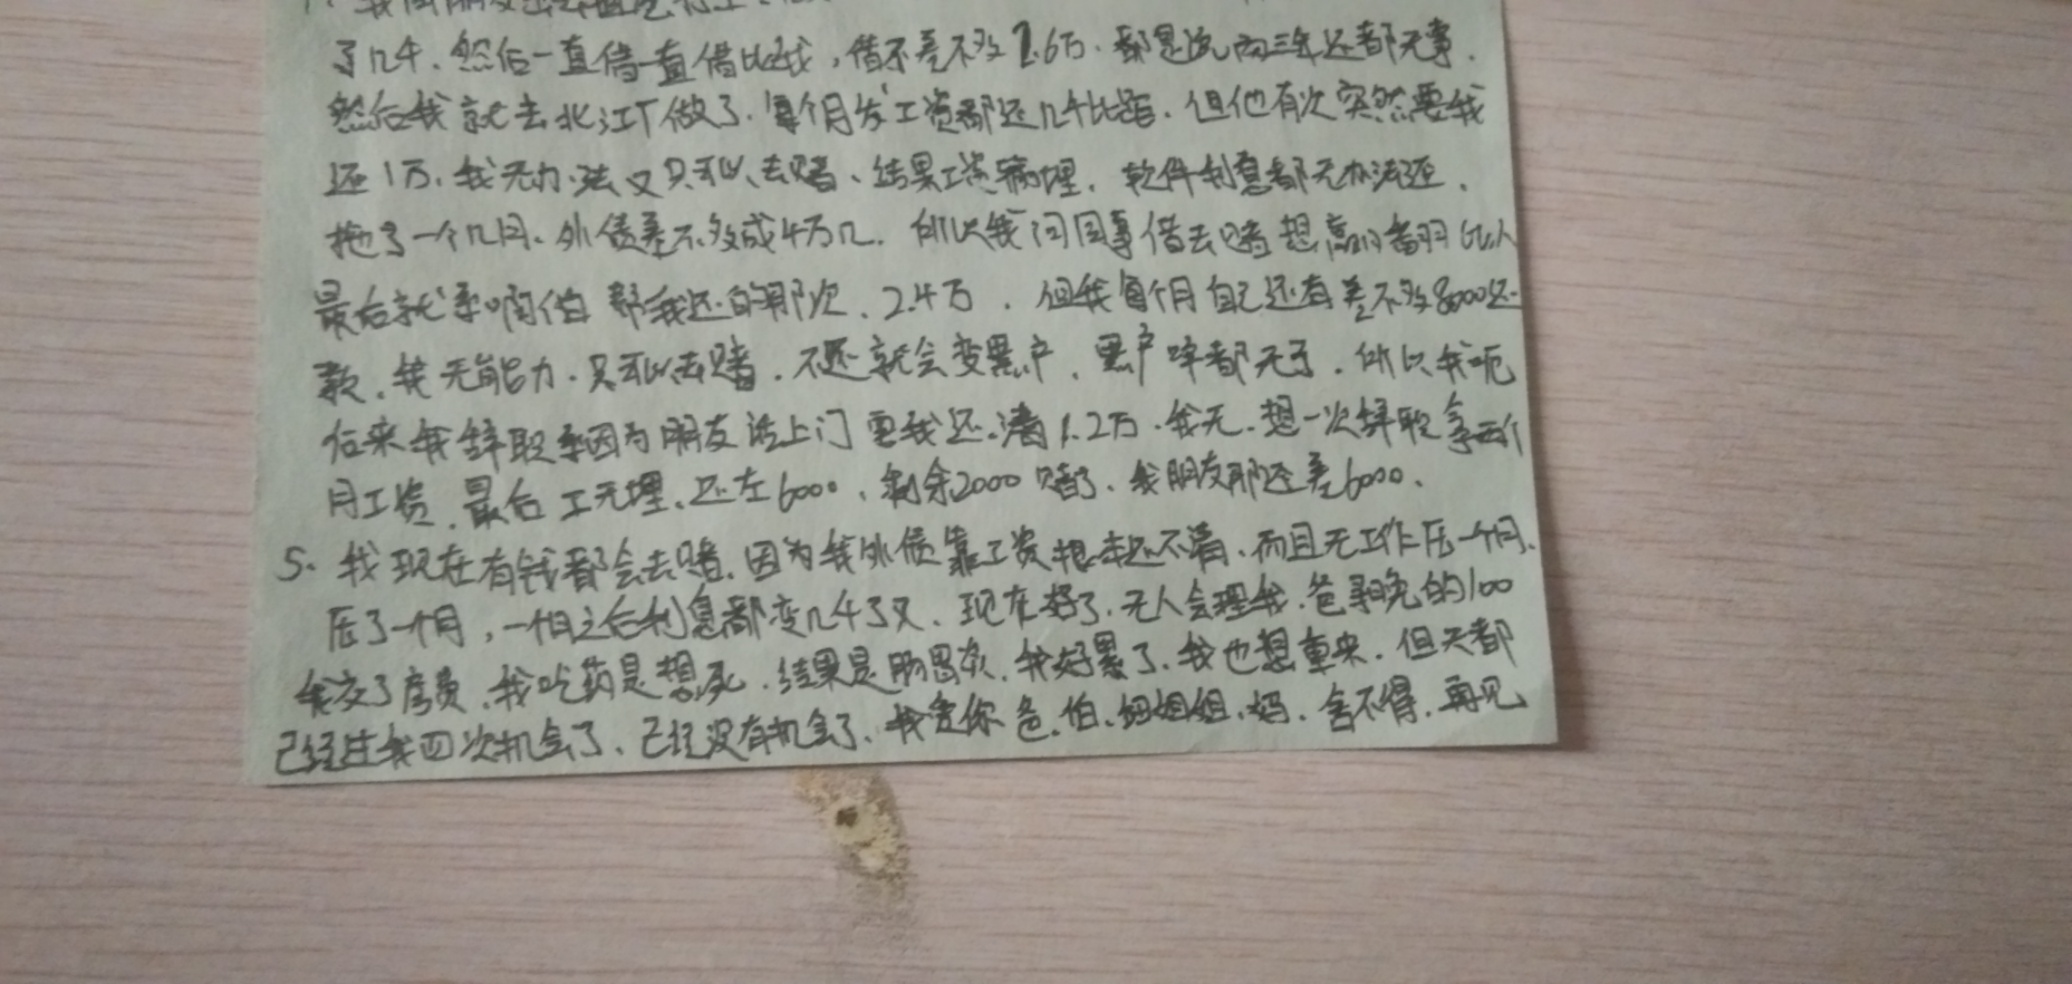 了几千、然后一直借一直借比我,借不差不多2.6万、都是说两三年还都无事.
然后我就去北江厂做了.每个月发工资都还几千比渠.但他有次突然要我
还1万、我无办法又只可以去赌、结果工资病埋.软件利息都无办法还.
拖了一个几月、外债差不多成4万几.所以我问同事借去赌想赢翻比人
最后就系啊伯帮我还的那次、2.4万.但我每个月自己还有差不多8000还
款、我无能力.只可以去赌.不还就会变黑户、黑户咩都无了.所以我呃
后来我辞职系因为朋友话上门要我还清1.2万.我无.想一次辞职拿两个
月工资.最后工无埋、还左6000,剩余2000赌了、我朋友那还差6000、
5、我现在有钱都会去赌、因为我外债靠工资根本还不清、而且无工作压一个月、
压了一个月,一个月之后利息都变几千了又.现在好了.无人会理我.爸寻晚的100
我交了房费、我吃药是想死.结果是肠胃炎.我好累了.我也想重来.但天都
已经过我四次机会了、已经没有机会了、我爱你爸、伯、细姐姐、妈.舍不得.再见